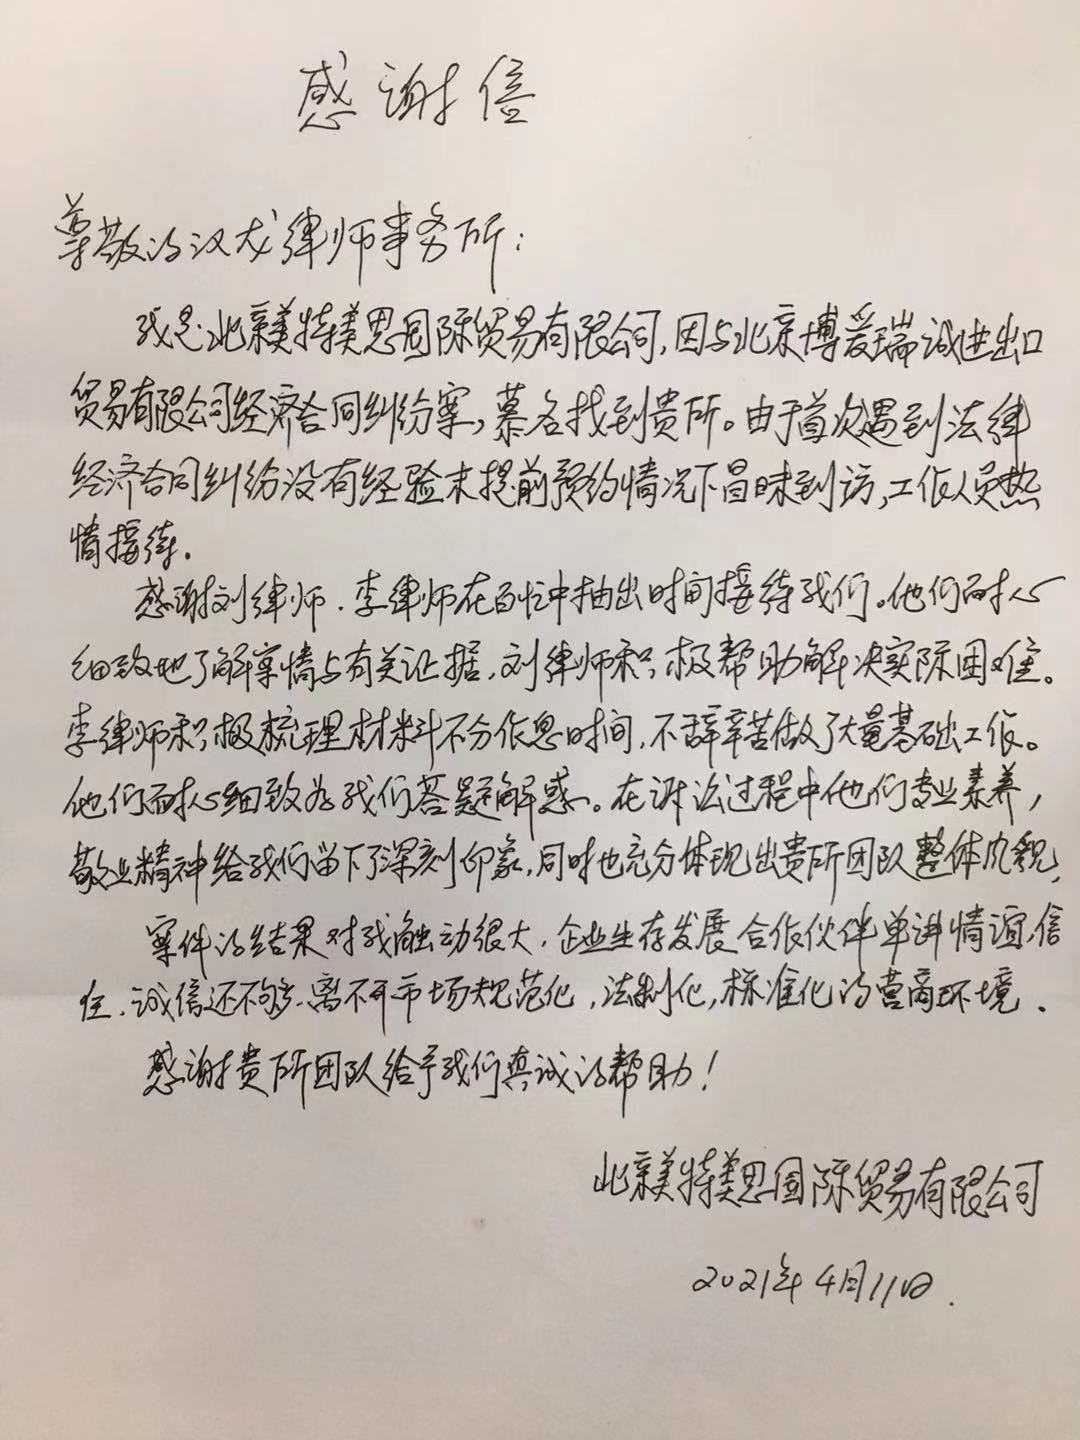 感谢信
尊敬的汉龙律师事务所：
我是北京美特美思国际贸易有限公司，因与北京博爱瑞诚进出口
贸易有限公司经济合同纠纷案，慕名找到贵所。由于首次遇到法律
经济合同纠纷没有经验未提前预约情况下冒昧到访，工作人员热
情接待.
感谢刘律师.李律师在百忙中抽出时间接待我们。他们耐心
细致地了解案情与有关证据，刘律师积极帮助解决实际困难。
李律师积极梳理材料不分作息时间，不辞辛苦做了大量基础工作。
他们耐心细致为我们答题解惑。在诉讼过程中他们专业素养，
敬业精神给我们留下了深刻印象，同时也充分体现出贵所团队整体风貌，
案件的结果对我触动很大，企业生存发展合作伙伴单讲情谊、信
任、诚信还不够、离不开市场规范化，法制化，标准化的营商环境.
感谢贵所团队给予我们真诚的帮助！
北京美特美思国际贸易有限公司
2021年4月11日.